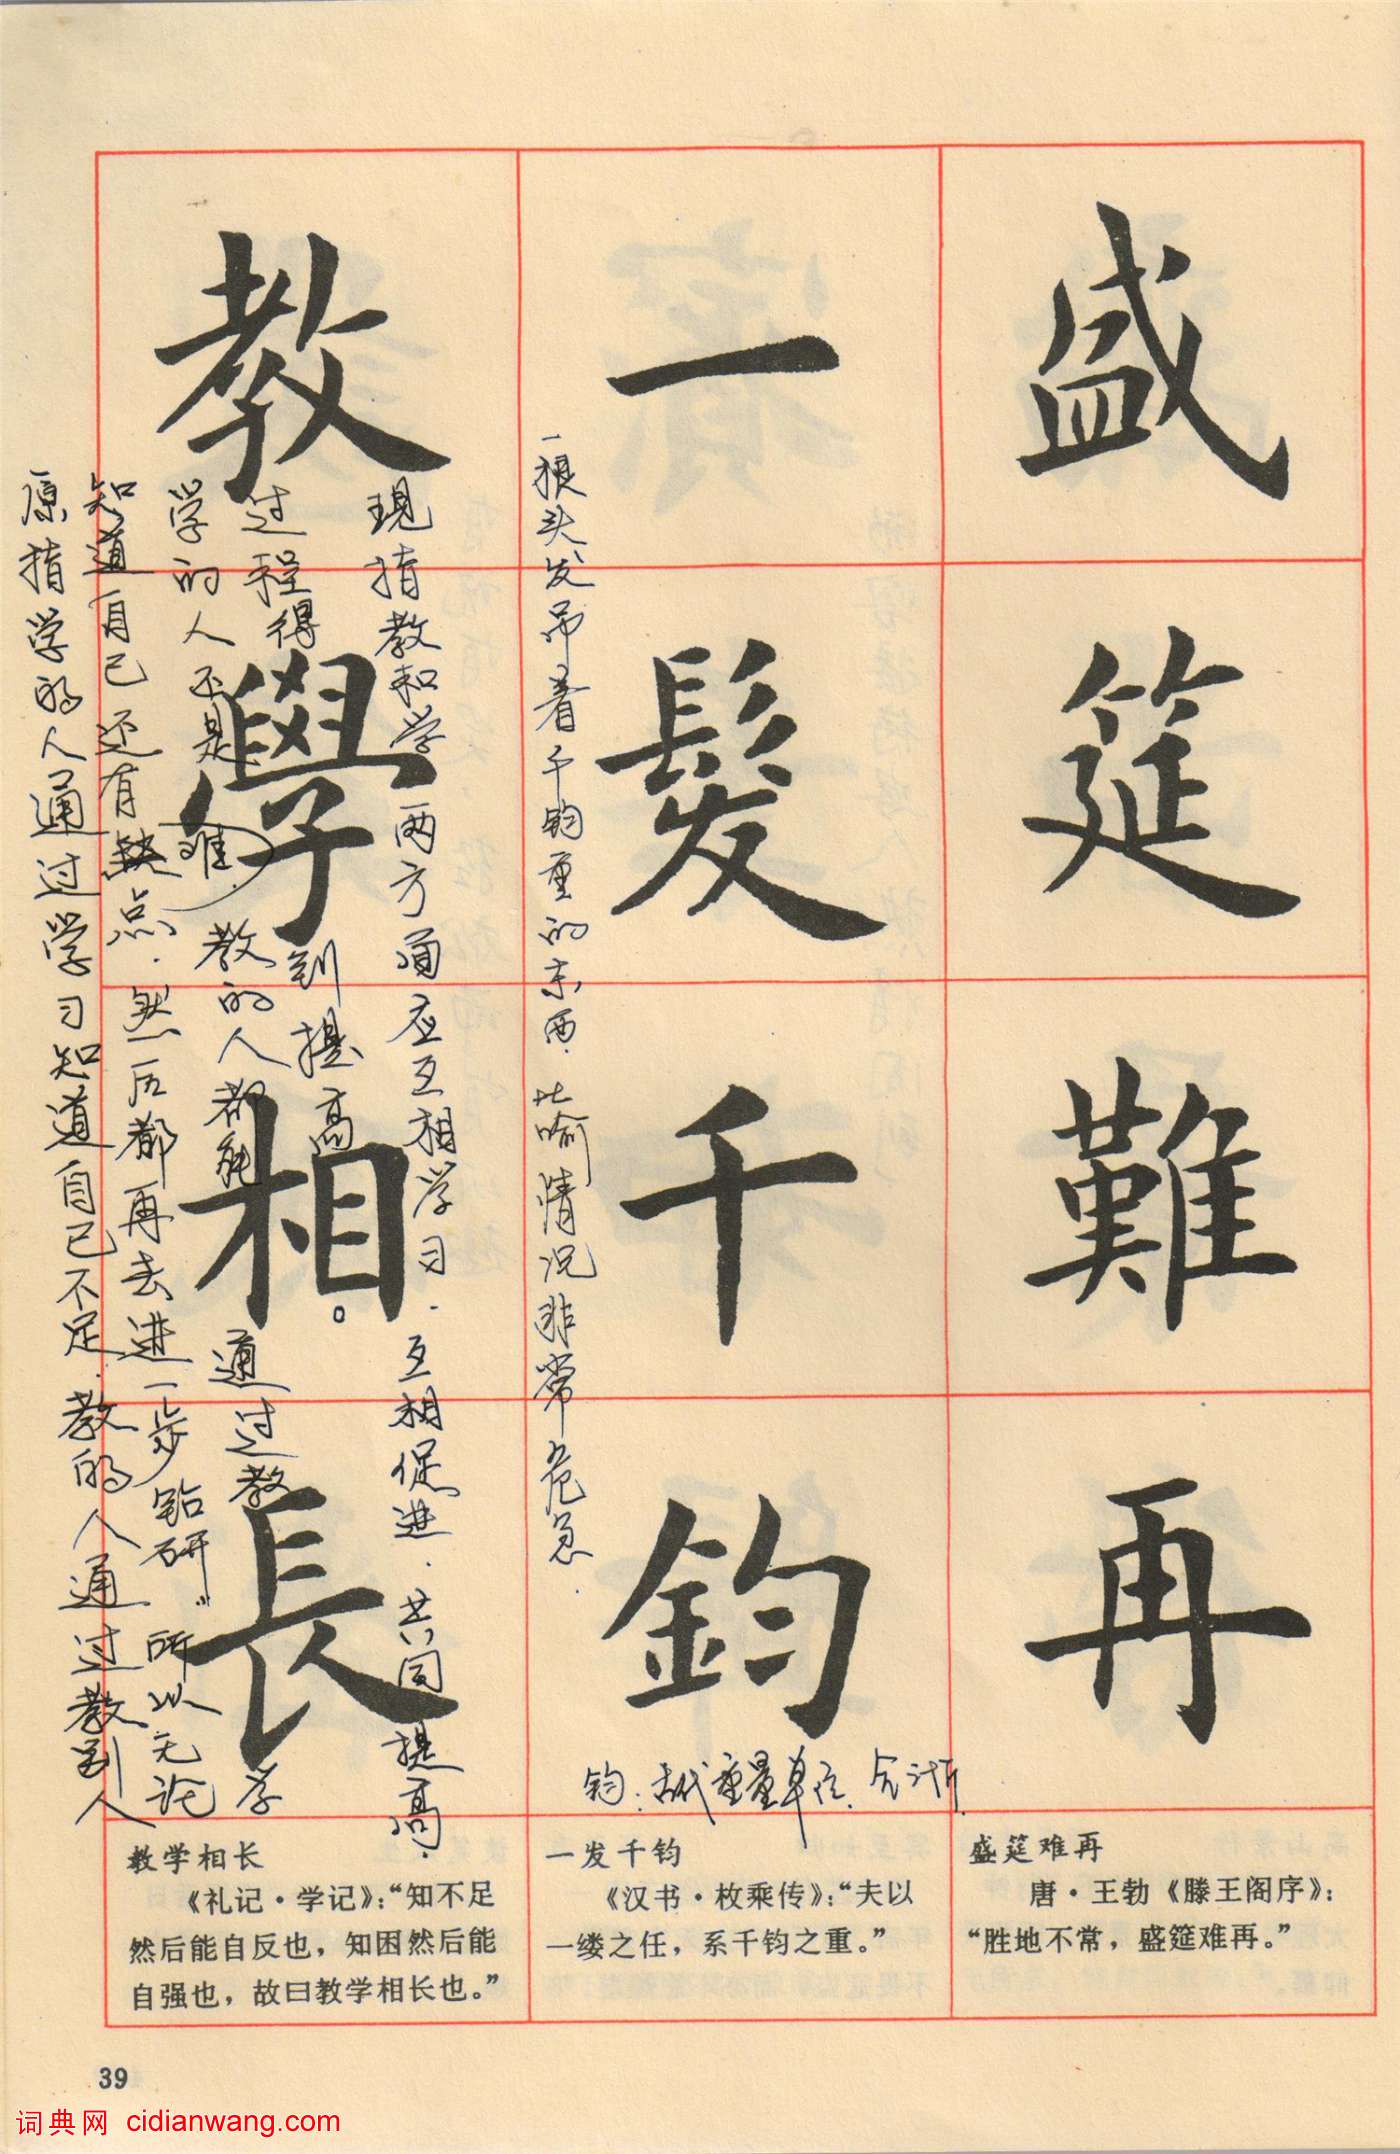 盛筵難再
一髮千鈞
教學相長
一根头发吊着千钧重的东西.比喻情况非常危急.
钧.古代重量单位.合
现指教和学两方面应互相学习.互相促进.共同提高.
过程得到提高。通过教
学的人还是
教的人都能
知道自己还有缺点.然后都再去进一步钻研.所以无论学
原指学的人通过学习知道自己不足.教的人通过教别人
盛筵难再
唐·王勃《滕王阁序》：
“胜地不常，盛筵难再。”
一发千钧
《汉书·枚乘传》：“夫以
一缕之任，系千钧之重。”
教学相长
《礼记·学记》：“知不足
然后能自反也，知困然后能
自强也，故曰教学相长也。”
39
词典网 cidianwang.com